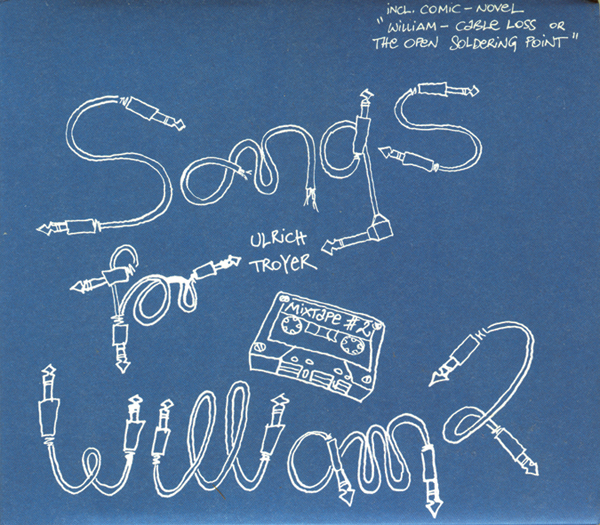 INCL. COMIC - NOVEL
"WILLIAM - CABLE LOSS OR
THE OPEN SOLDERING POINT"
Songs
For
ULRICH
TROYER
MIXTAPE #2
William 2